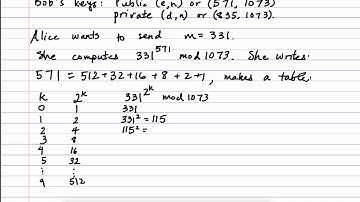 Bob's keys: Public (e,n) or (571, 1073)
private (d,n) or (835, 1073).
Alice wants to send m = 331.
She computes 331^571 mod 1073. She writes:
571 = 512+32+16+8+2+1, makes a table:
k 2^k 331^2^k mod 1073
0 1 331
1 2 331² = 115
2 4 115² =
3 8
4 16
5 32
⋮ ⋮
9 512